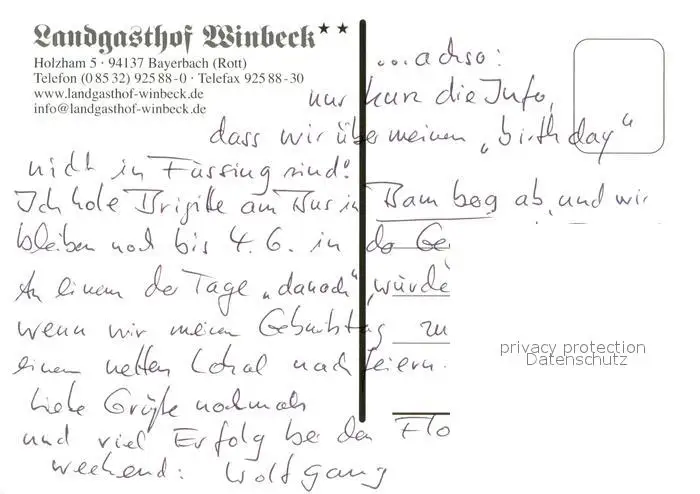 Landgasthof Winbeck ★★
Holzham 5 · 94137 Bayerbach (Rott)
Telefon (0 85 32) 925 88 - 0 · Telefax 925 88 - 30
www.landgasthof-winbeck.de
info@landgasthof-winbeck.de
...achso:
nur kurz die Info,
dass wir über meinen „birthday"
nicht in Füssing sind!
Ich hole Brigitte am Bus in Bamberg ab, und wir
bleiben noch bis 4. 6. in de Ge
An einem der Tage „danach", würde
wenn wir meinen Geburtstag zu
einem netten Lokal nachfeiern.
Liebe Grüße nochmals
und viel Erfolg bei den Flo
weekend: Wolfgang
privacy protection
Datenschutz